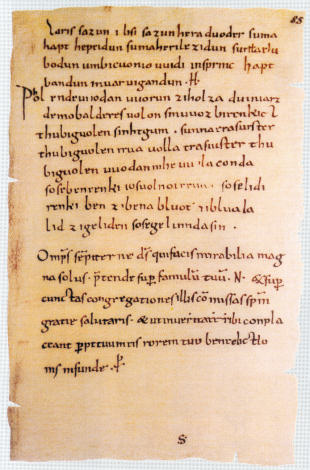 85
Eiris sazun idisi sazun hera duoder suma
hapt heptidun suma herilezidun sumaclu
bodun umbicuonio uuidi insprinc hapt
bandun inuar uigandun · H ·
Phol endeuuodan uuorun ziholza du uuart
demobalderes uolon sinuuoz birenkict
thubiguolen sinhtgunt · sunna era suister
thubiguolen friia uolla era suister thu
biguolen uuodan
sosebenrenki soselidi
renki ben zi bena bluot zi bluoda
lid zi geliden sosegelimida sin ·
Omps sempiter ne ds qui facis mirabilia mag
na solus · ptende sup famulu tuu · N · & sup
cunctas congregationes illis comissas spm
gratie salutaris · & ut inueritate tibi conpla
ceant ppetuum eis rorem tuo benedictio
nis infunde · p
S